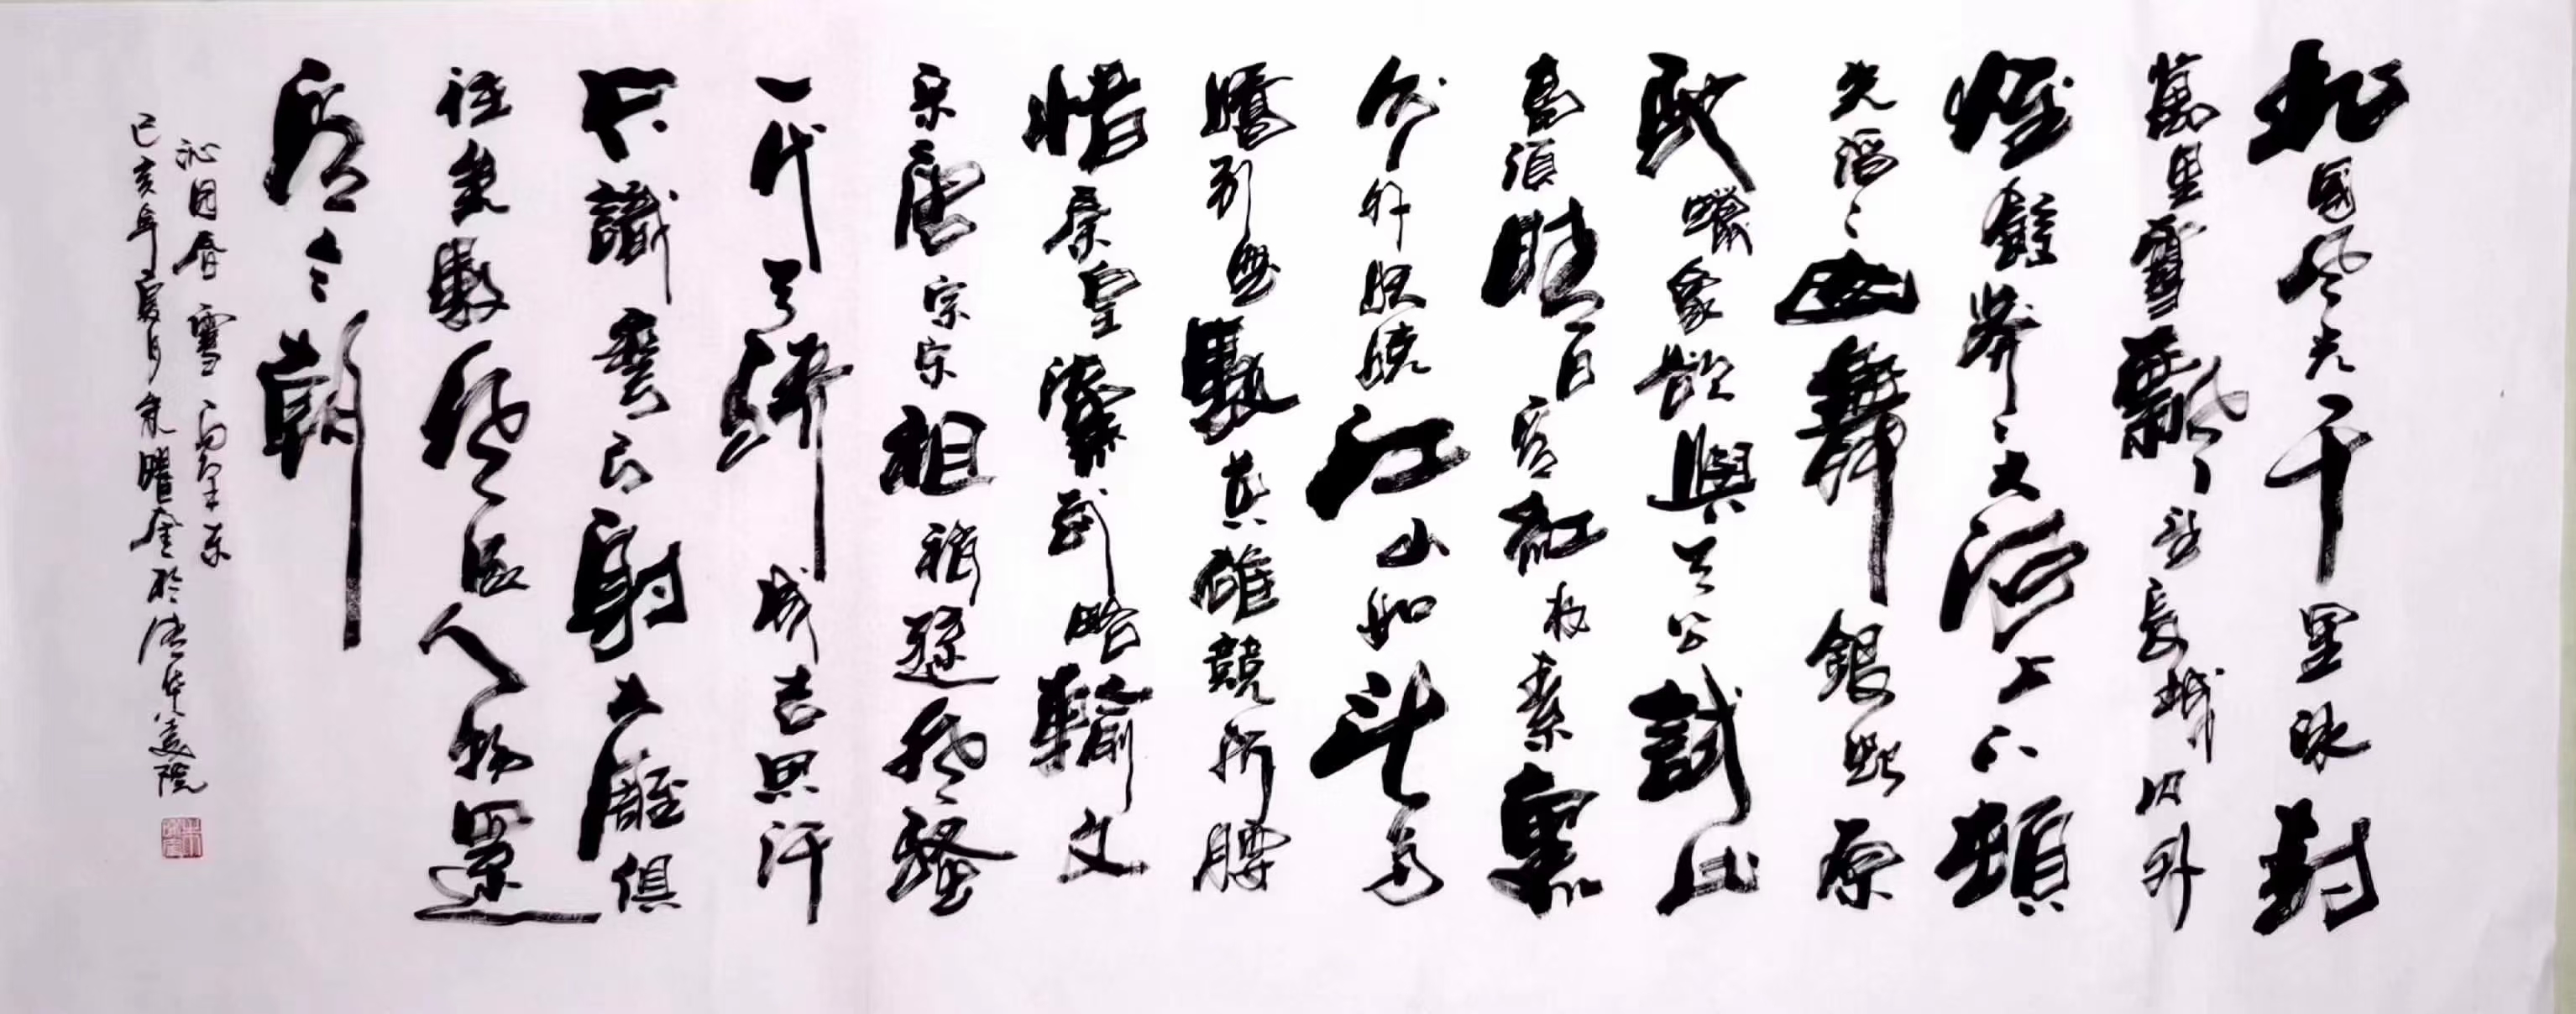 北國風光千里冰封
萬里雪飄望長城内外
惟餘莽〻大河上下頓
失滔〻山舞銀蛇原
馳蠟象欲與天公試比
高須晴日看紅妝素裹
分外妖嬈江山如此多
嬌引無數英雄競折腰
惜秦皇漢武略輸文
采唐宗宋祖稍遜風騷
一代天驕成吉思汗
只識彎弓射大雕俱
往矣數風流人物還
看今朝
沁园春雪
己亥年夏月朱曙金於清华美院